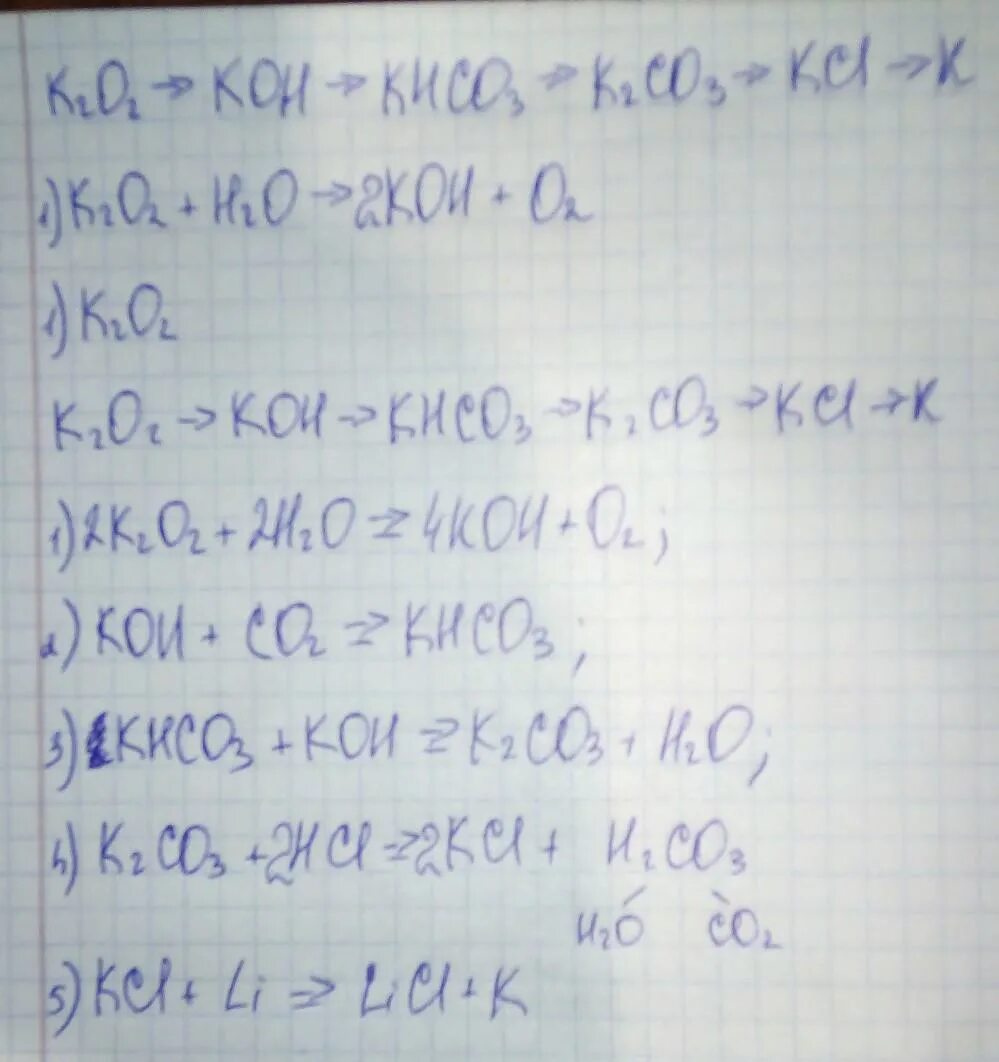 K₂O₂ → KOH → KHCO₃ → K₂CO₃ → KCl → K
1) K₂O₂ + H₂O → 2KOH + O₂
1) K₂O₂
K₂O₂ → KOH → KHCO₃ → K₂CO₃ → KCl → K
1) 2K₂O₂ + 2H₂O ⇒ 4KOH + O₂;
2) KOH + CO₂ ⇒ KHCO₃;
3) KHCO₃ + KOH ⇒ K₂CO₃ + H₂O;
4) K₂CO₃ + 2HCl ⇒ 2KCl + H₂CO₃
H₂O CO₂
5) KCl + Li ⇒ LiCl + K